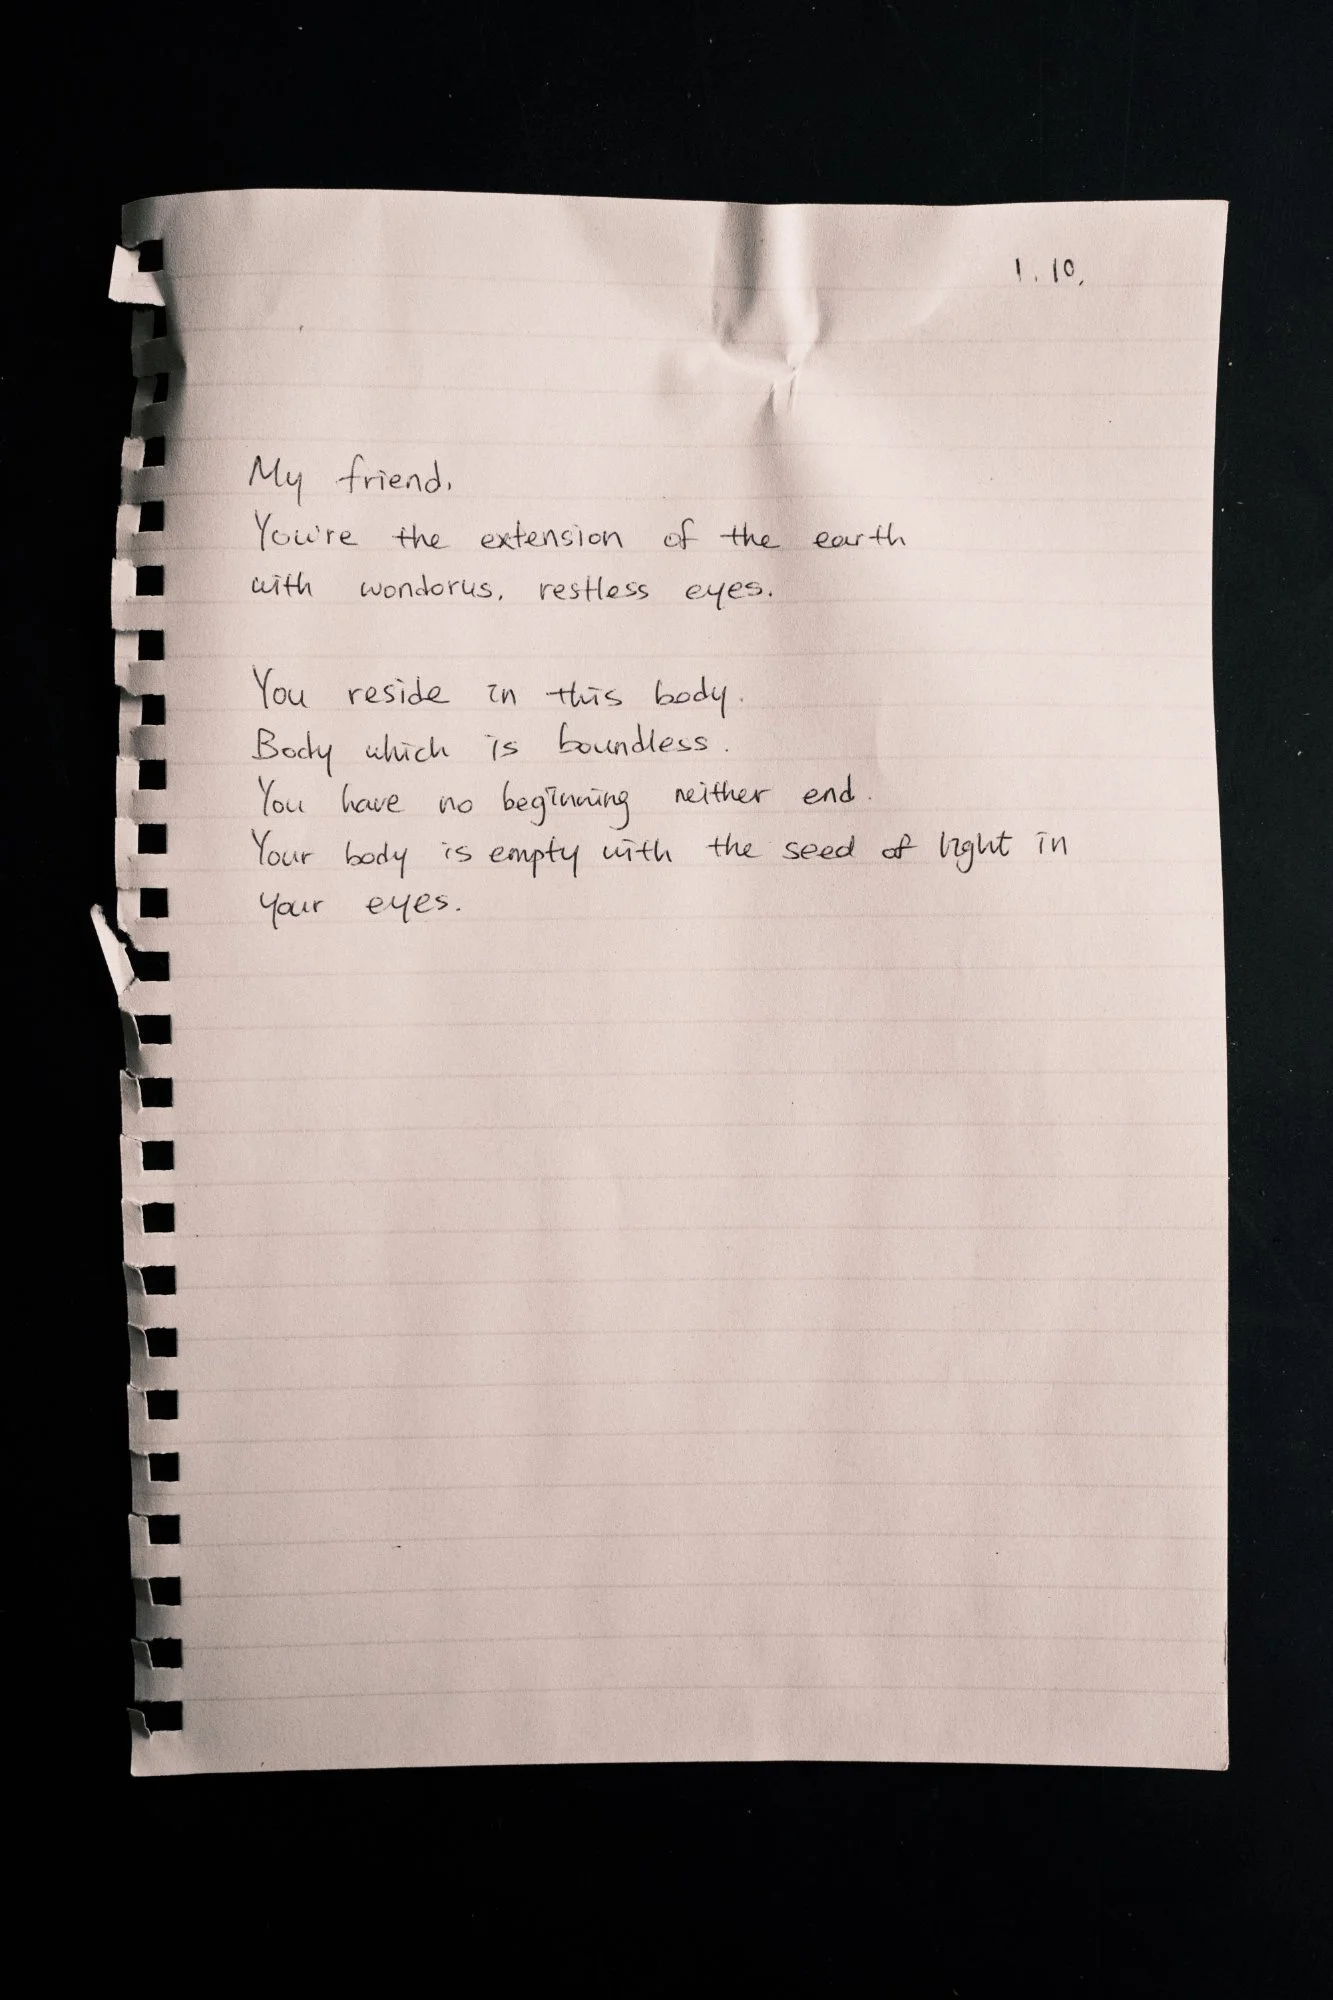 1. 10.
My friend,
You're the extension of the earth
with wondorus, restless eyes.
You reside in this body.
Body which is boundless.
You have no beginning neither end.
Your body is empty with the seed of light in
your eyes.